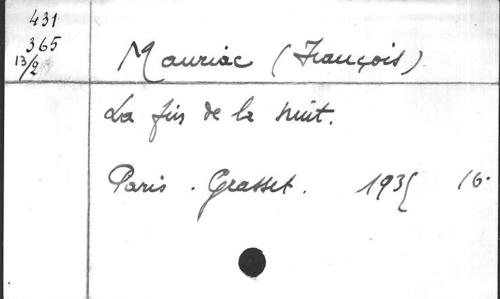 431
365
13/2
Mauriac (François)
La fin de la nuit.
Paris. Grasset. 1935 16.